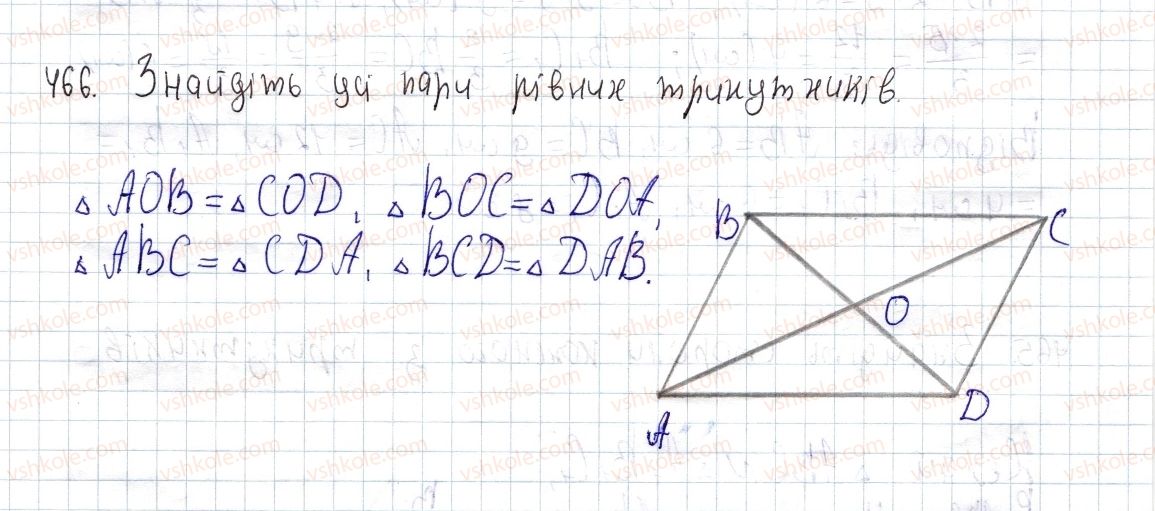 466. Знайдіть усі пари рівних трикутників.
△ AOB = △ COD, △ BOC = △ DOA,
△ ABC = △ CDA, △ BCD = △ DAB.
B
C
O
A
D